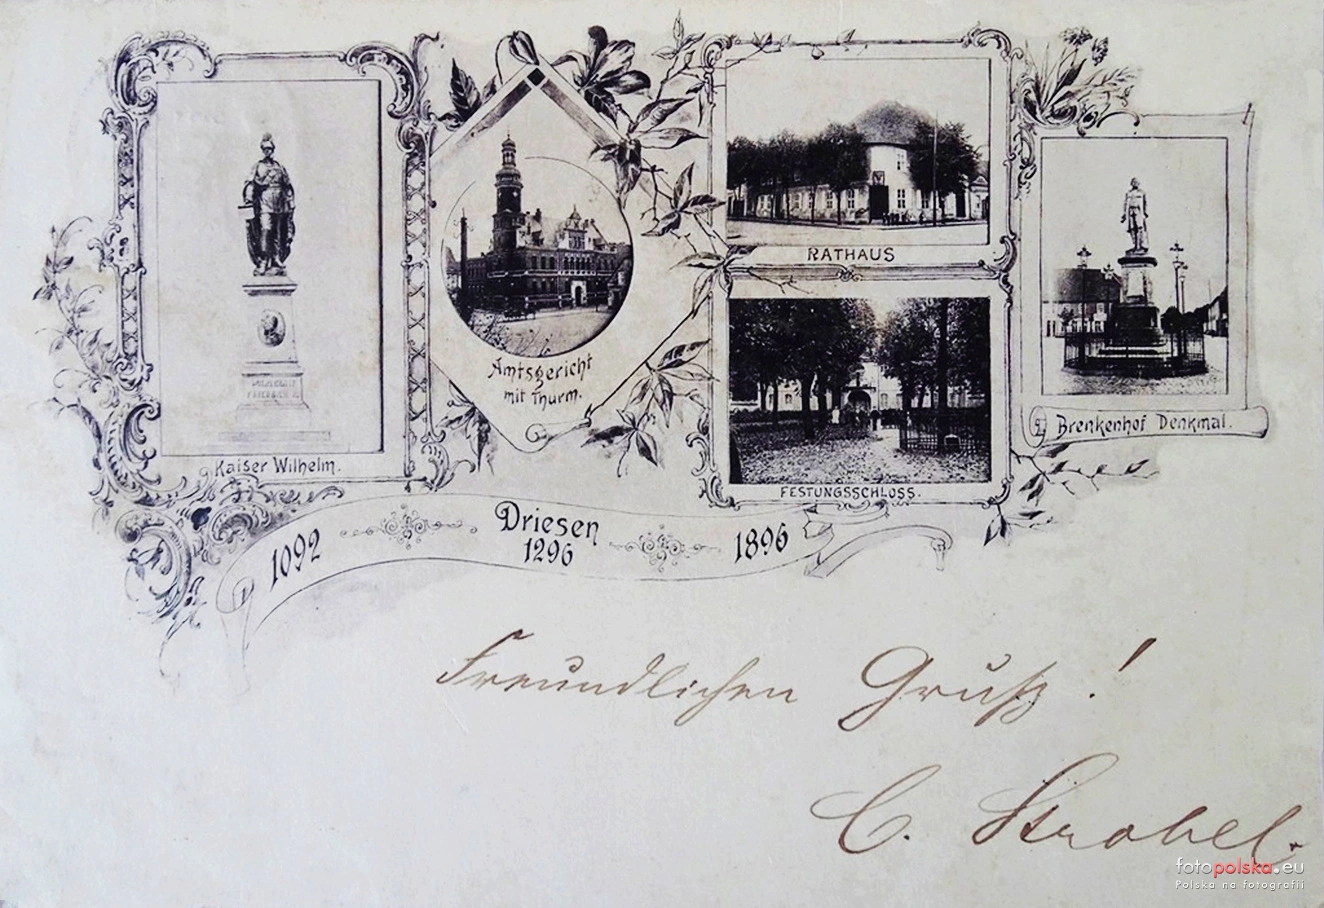 Kaiser Wilhelm.
Amtsgericht
mit Thurm.
RATHAUS
FESTUNGSSCHLOSS.
Brenkenhof Denkmal.
1092
Driesen
1296
1896
Freundlichen Gruß!
C. Strobel.
fotopolska.eu
Polska na fotografii